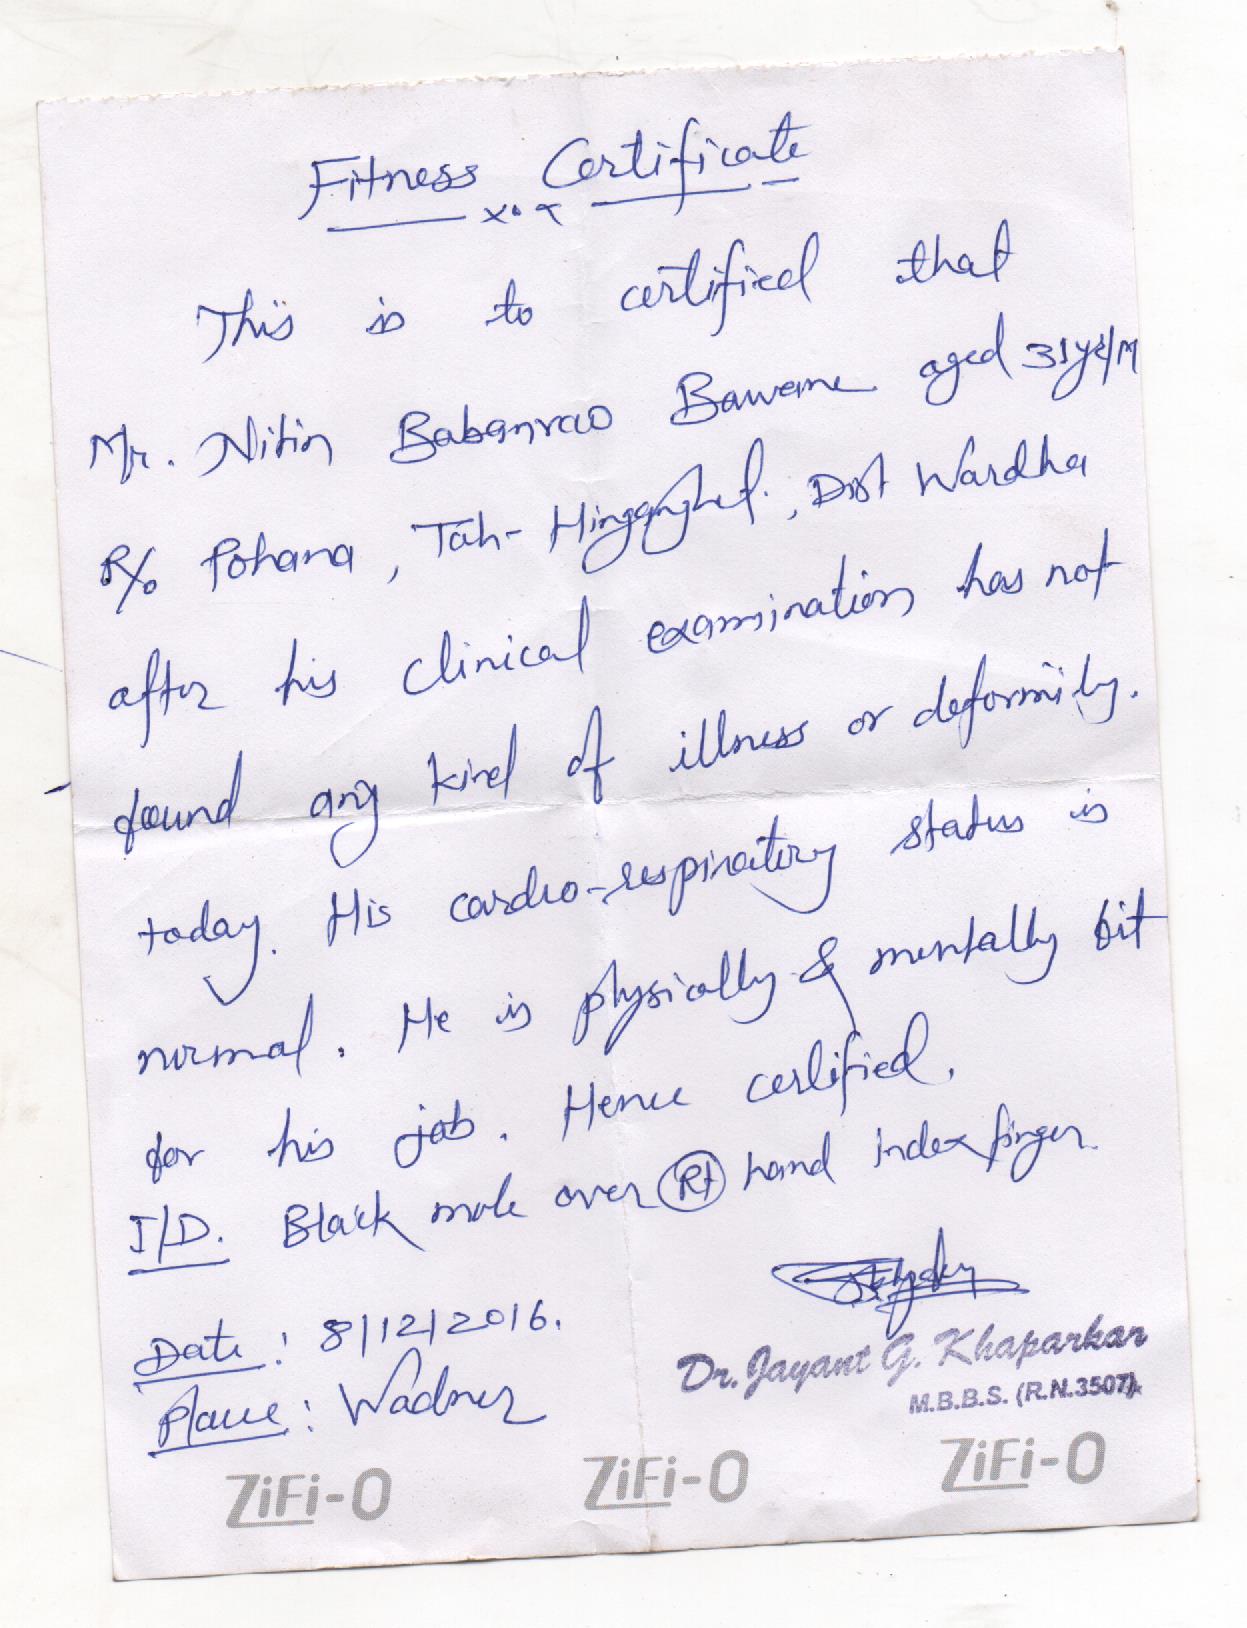 Fitness Certificate
This is to certified that
Mr. Nitin Babanrao Bawane aged 31yrs/M
R/o Pohana, Tah- Hinganghat., Dist Wardha
after his clinical examination has not
found any kind of illness or deformity.
today. His cardio-respiratory status is
normal. He is physically & mentally fit
for his job. Hence certified.
I/D. Black mole over Rt hand index finger.
Date : 8/12/2016.
Place : Wadner
Dr. Jayant G. Khaparkar
M.B.B.S. (R.N.3507)
ZiFi-O ZiFi-O ZiFi-O